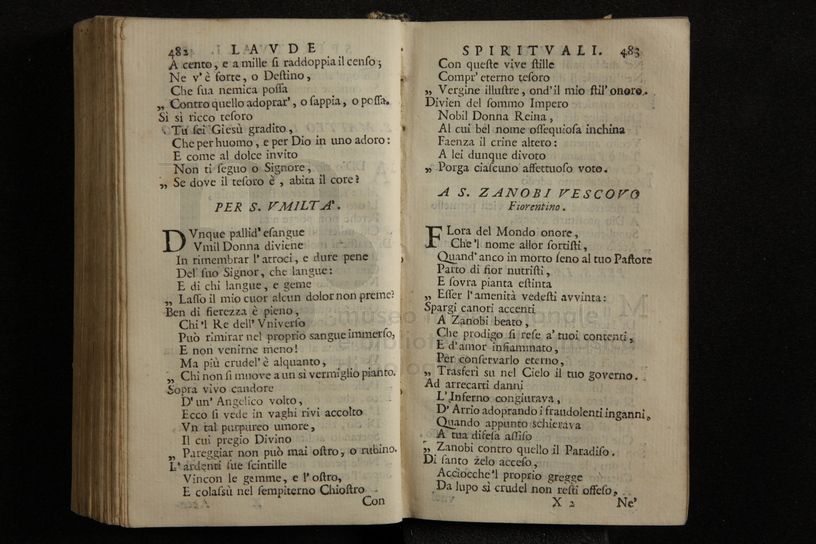 482 LAVDE
A cento, e a mille si raddoppia il censo;
Ne v' è forte, o Destino,
Che sua nemica possa
„ Contro quello adoprar', o sappia, o possa.
Si si ricco tesoro
Tu sei Giesù gradito,
Che per huomo, e per Dio in uno adoro:
E come al dolce invito
Non ti seguo o Signore,
„ Se dove il tesoro è, abita il core?
PER S. VMILTA'.
DVnque pallid' esangue
Vmil Donna diviene
In rimembrar l' atroci, e dure pene
Del suo Signor, che langue:
E di chi langue, e geme
„ Lasso il mio cuor alcun dolor non preme?
Ben di fierezza è pieno,
Chi 'l Re dell' Vniverso
Può rimirar nel proprio sangue immerso,
E non venirne meno!
Ma più crudel' è alquanto,
„ Chi non si muove a un sì vermiglio pianto.
Sopra vivo candore
D' un' Angelico volto,
Ecco si vede in vaghi rivi accolto
Vn tal purpureo umore,
Il cui pregio Divino
„ Pareggiar non può mai ostro, o rubino.
L' ardenti sue scintille
Vincon le gemme, e l' ostro,
E colassù nel sempiterno Chiostro
Con
SPIRITVALI. 483
Con queste vive stille
Compr' eterno tesoro
„ Vergine illustre, ond' il mio stil' onoro.
Divien del sommo Impero
Nobil Donna Reina,
Al cui bel nome ossequiosa inchina
Faenza il crine altero:
A lei dunque divoto
„ Porga ciascuno affettuoso voto.
A S. ZANOBI VESCOVO
Fiorentino.
FLora del Mondo onore,
Che 'l nome allor sortisti,
Quand' anco in morto seno al tuo Pastore
Parto di fior nutristi,
E sovra pianta estinta
„ Esser l' amenità vedesti avvinta:
Spargi canori accenti
A Zanobi beato,
Che prodigo si rese a' tuoi contenti,
E d' amor infiammato,
Per conservarlo eterno,
„ Trasferì su nel Cielo il tuo governo.
Ad arrecarti danni
L' Inferno congiurava,
D' Arrio adoprando i fraudolenti inganni,
Quando appunto schierava
A tua difesa assiso
„ Zanobi contro quello il Paradiso.
Di santo zelo acceso,
Acciocche'l proprio gregge
Da lupo sì crudel non resti offeso,
X 2 Ne'